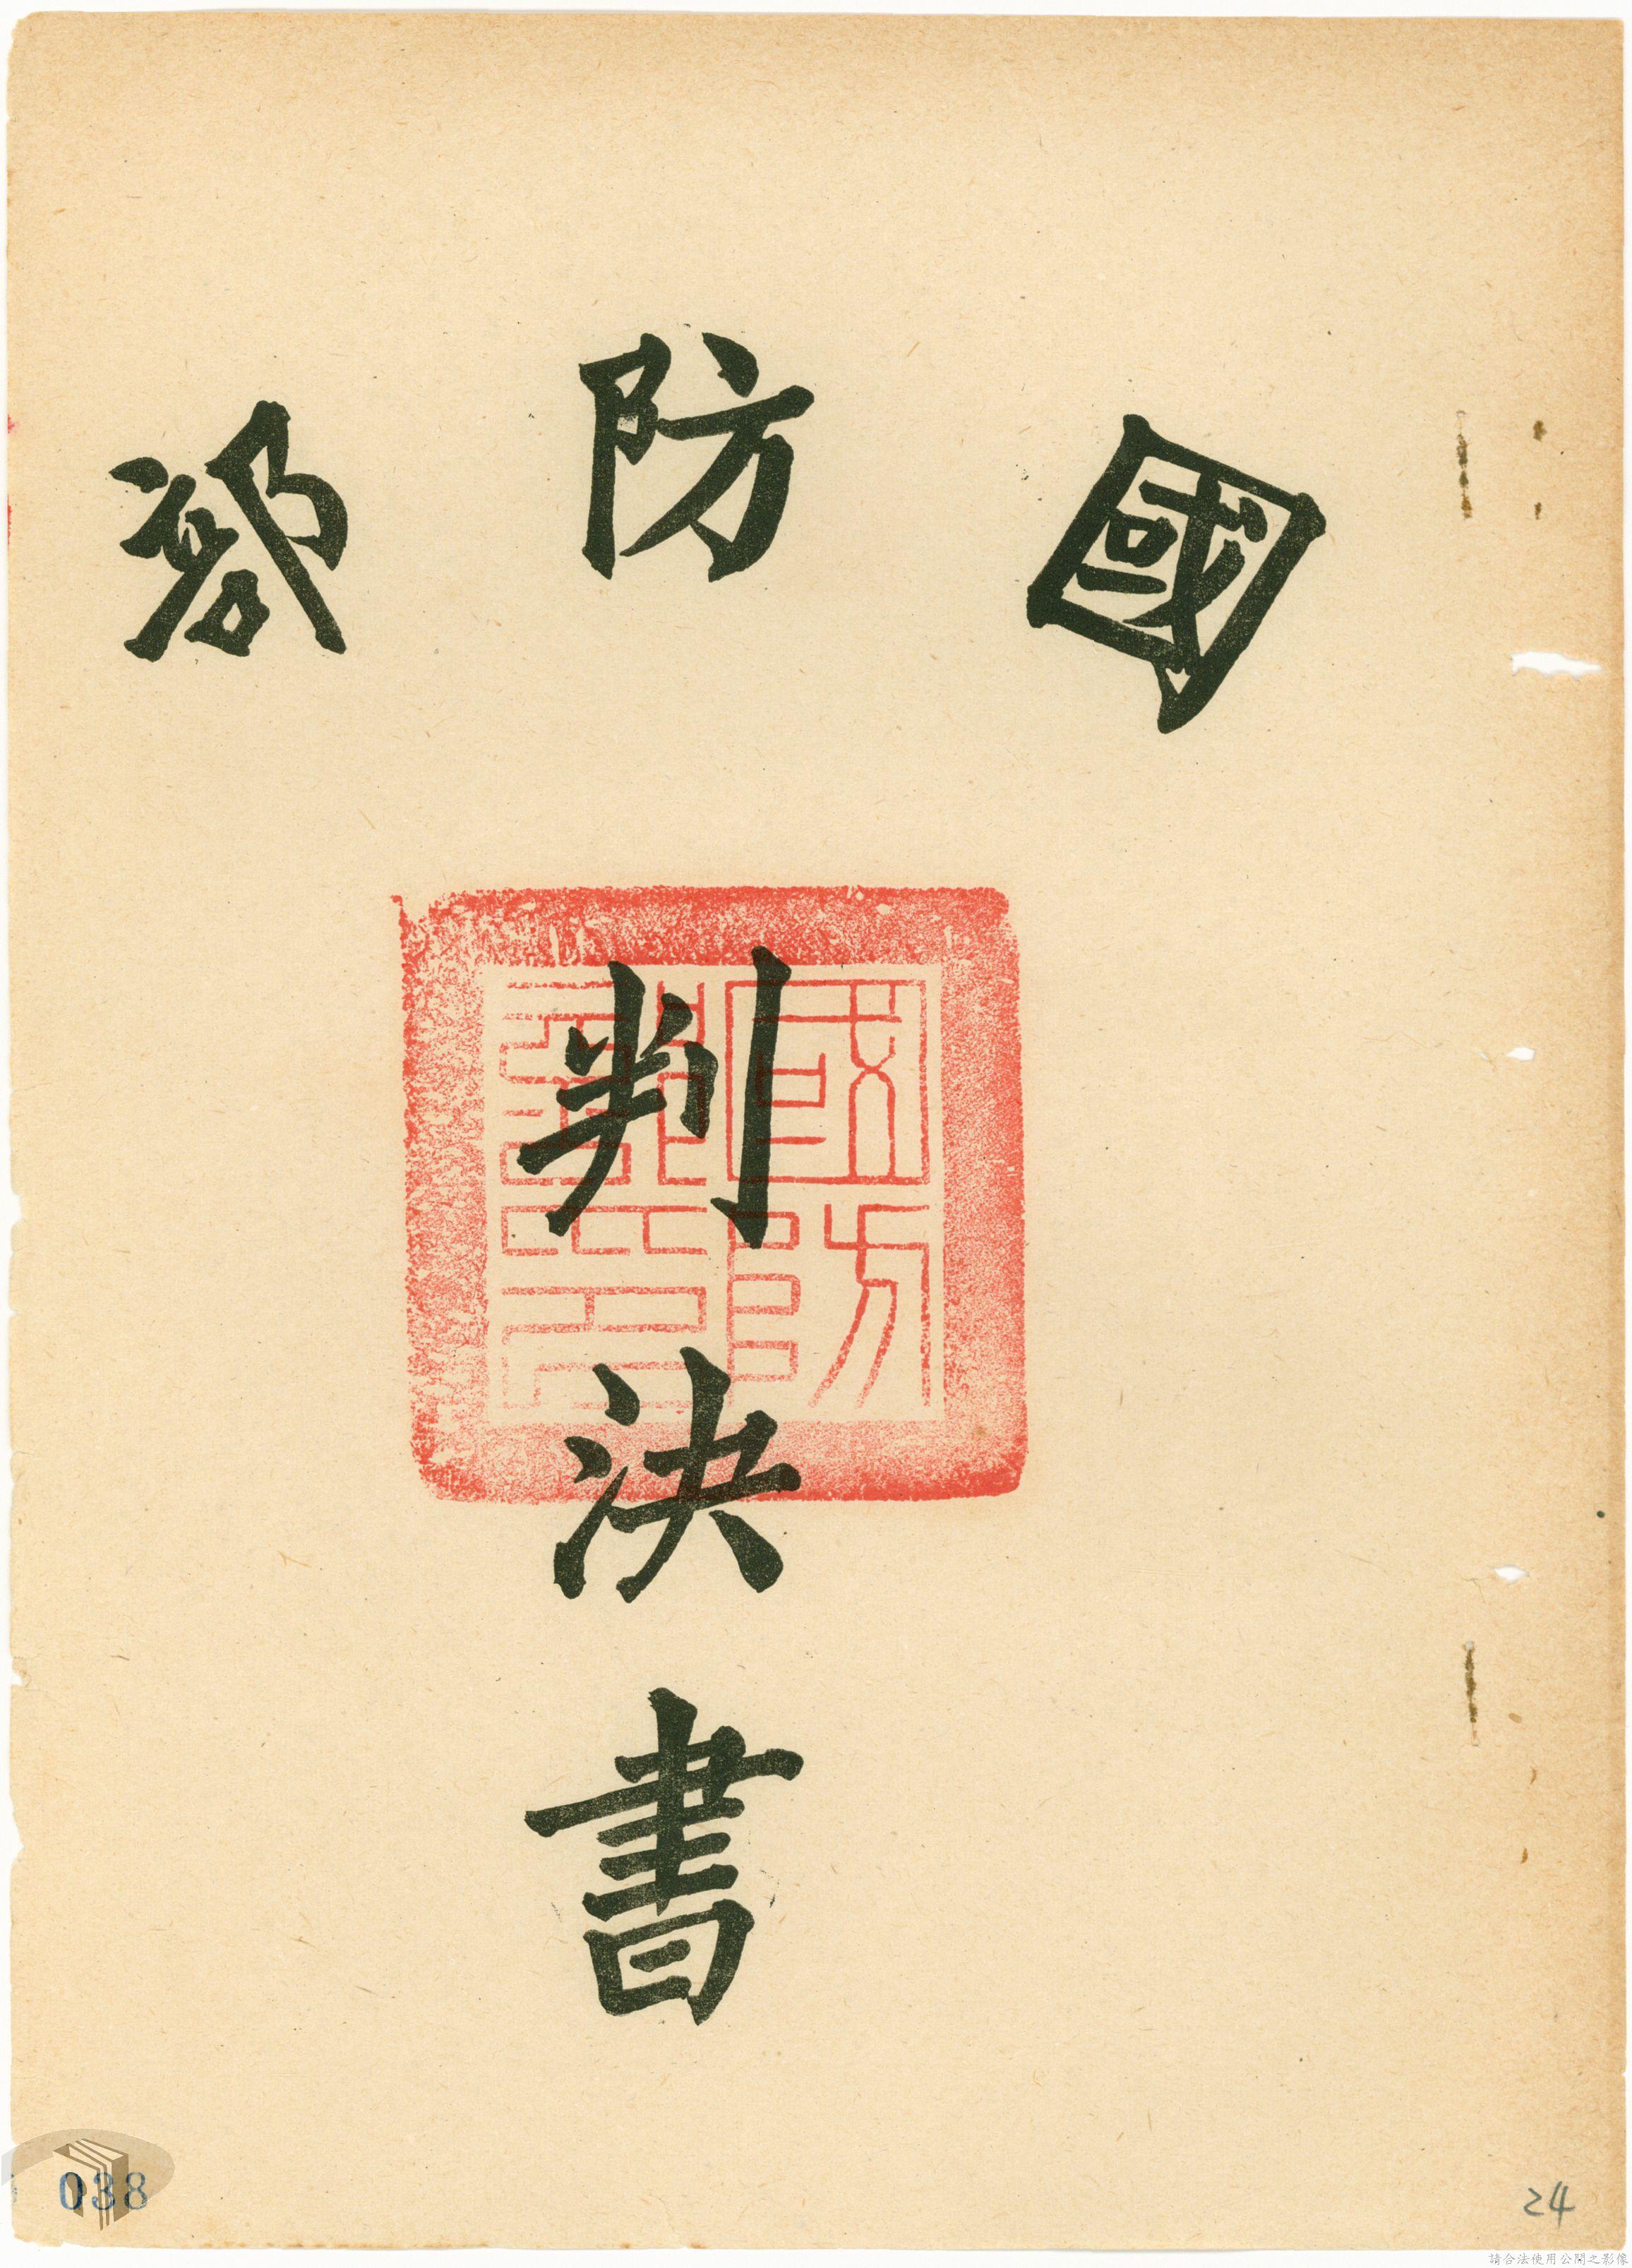 國防部
判決書
國防部印
038
24
請合法使用公開之影像